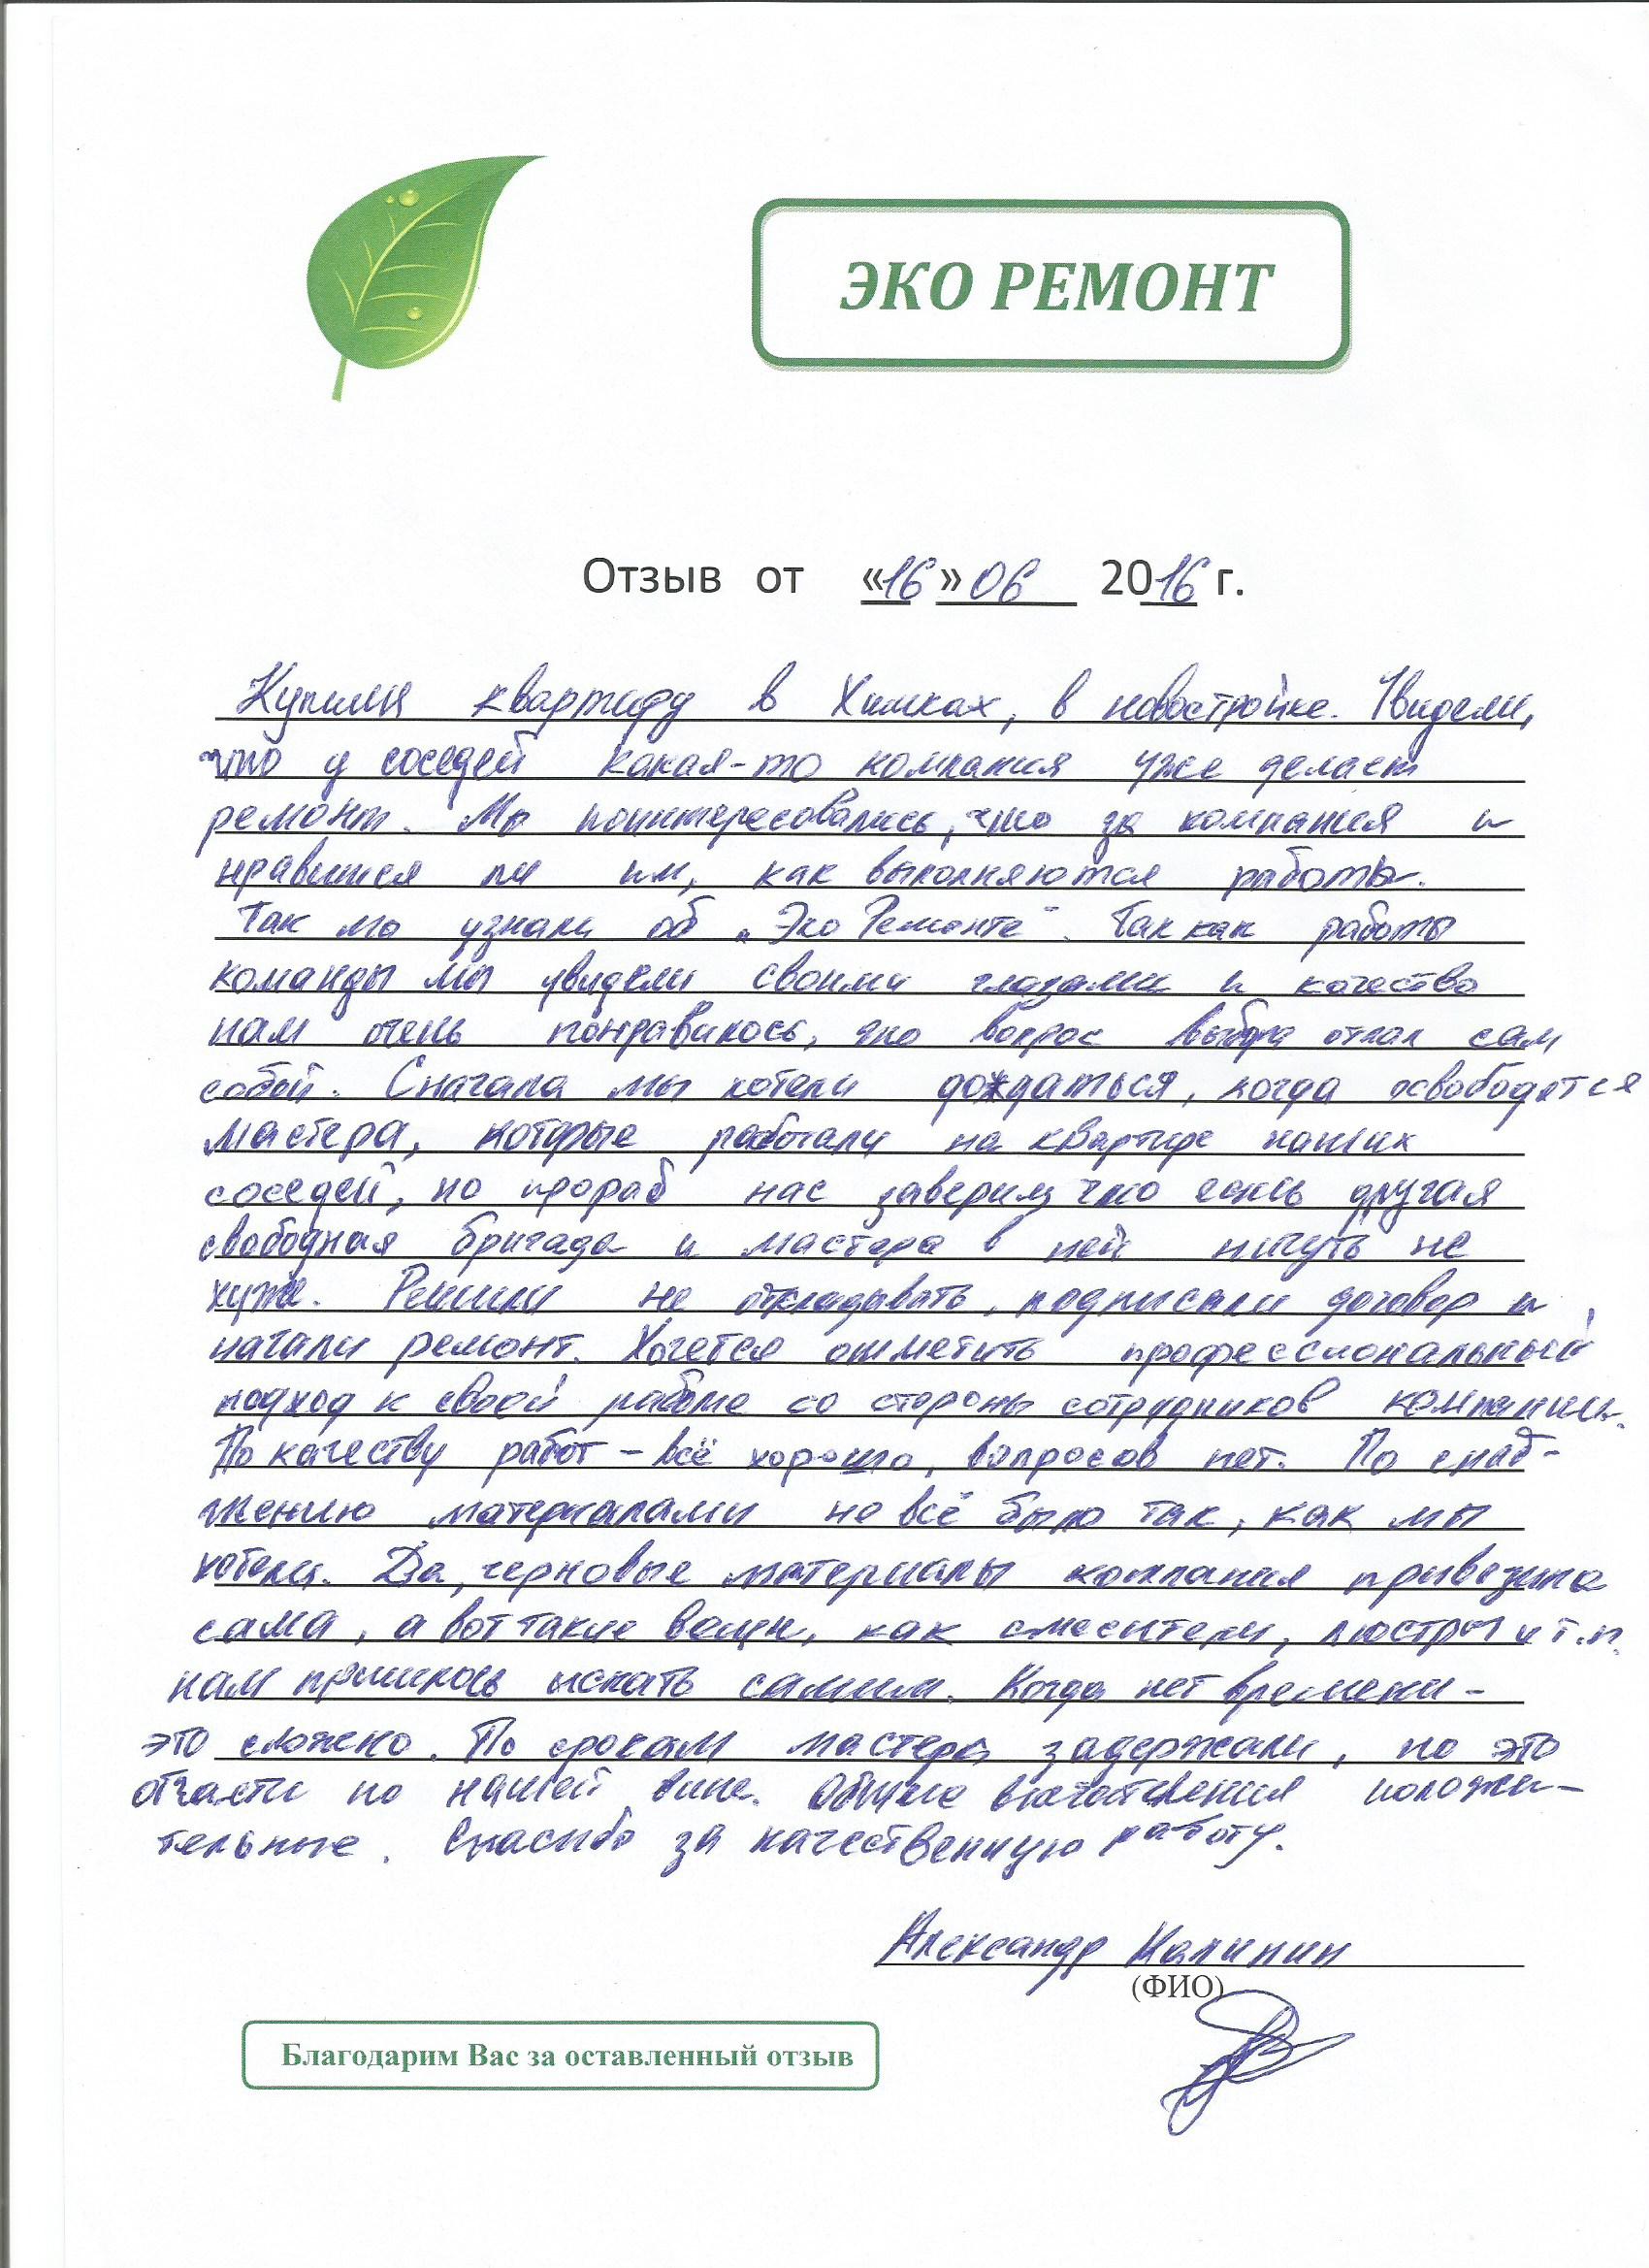 ЭКО РЕМОНТ
Отзыв от «16» 06 2016 г.
Купили квартиру в Химках, в новостройке. Увидели,
что у соседей какая-то компания уже делает
ремонт. Мы поинтересовались, что за компания и
нравится ли им, как выполняются работы.
Так мы узнали об „Эко Ремонте". Так как работы
команды мы увидели своими глазами и качество
нам очень понравилось, что вопрос выбора отпал сам
собой. Сначала мы хотели дождаться, когда освободятся
мастера, которые работали на квартире наших
соседей, но прораб нас заверил, что есть другая
свободная бригада и мастера в ней ничуть не
хуже. Решили не откладывать, подписали договор и
начали ремонт. Хочется отметить профессиональный
подход к своей работе со стороны сотрудников компании.
По качеству работ – всё хорошо, вопросов нет. По снаб-
жению материалами не всё было так, как мы
хотели. Да, черновые материалы компания привезла
сама, а вот такие вещи, как смесители, люстры и т.п.
нам пришлось искать самим. Когда нет времени –
это сложно. По срокам мастера задержали, но это
отчасти по нашей вине. Общие впечатления положи-
тельные. Спасибо за качественную работу.
Александр Калинин
(ФИО)
Благодарим Вас за оставленный отзыв